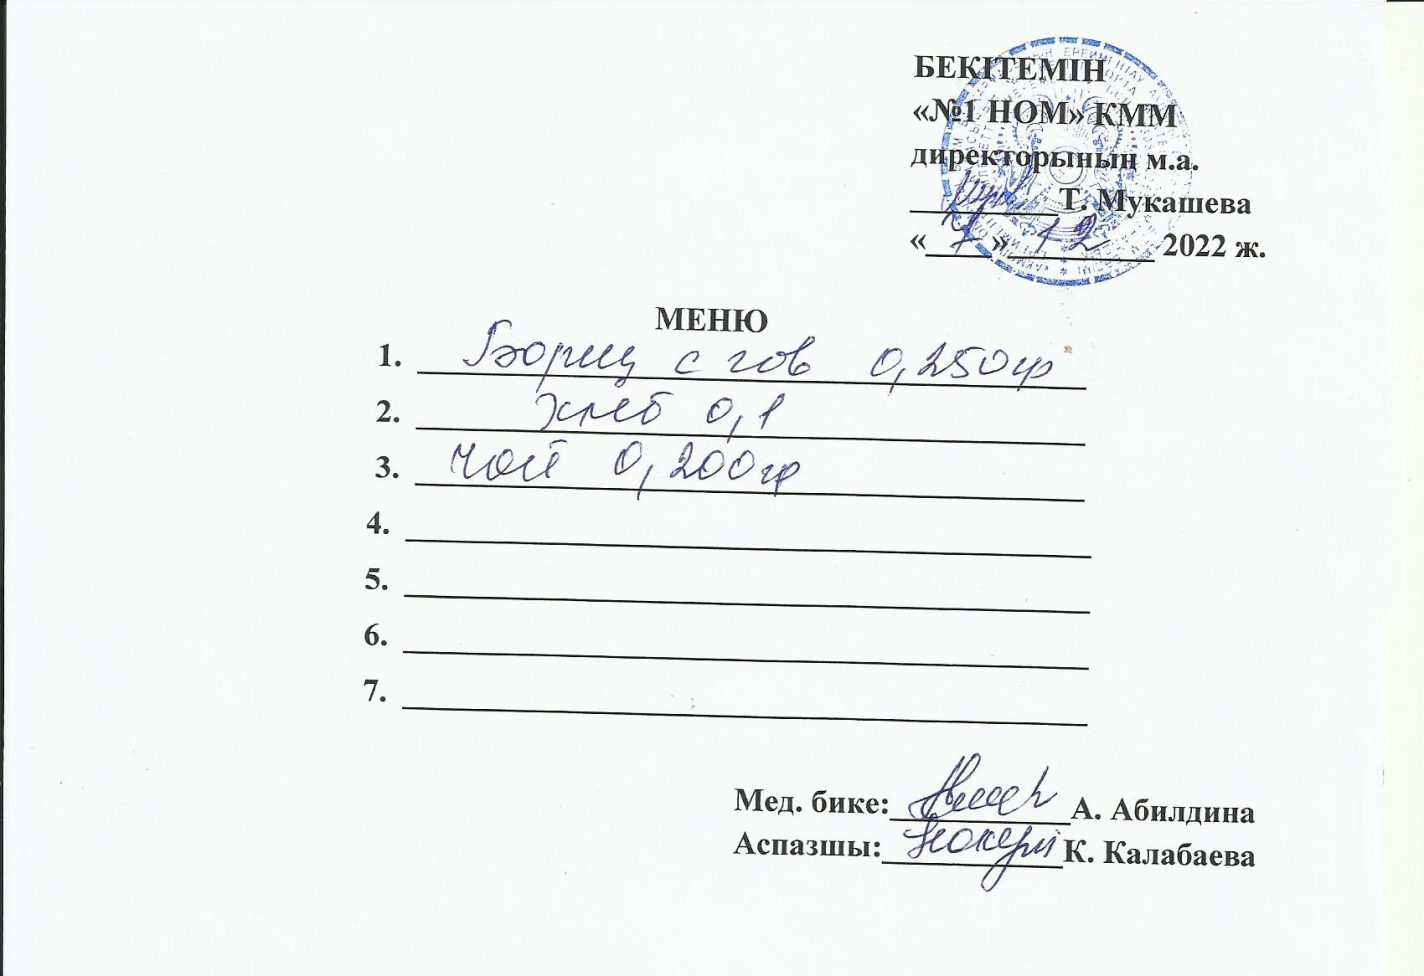 БЕКІТЕМІН
«№1 НОМ» КММ
директорының м.а.
Т. Мукашева
«7» 12 2022 ж.
МЕНЮ
1. Борщ с гов 0,250гр
2. хлеб 0,1
3. чай 0,200гр
4.
5.
6.
7.
Мед. бике: А. Абилдина
Аспазшы: К. Калабаева